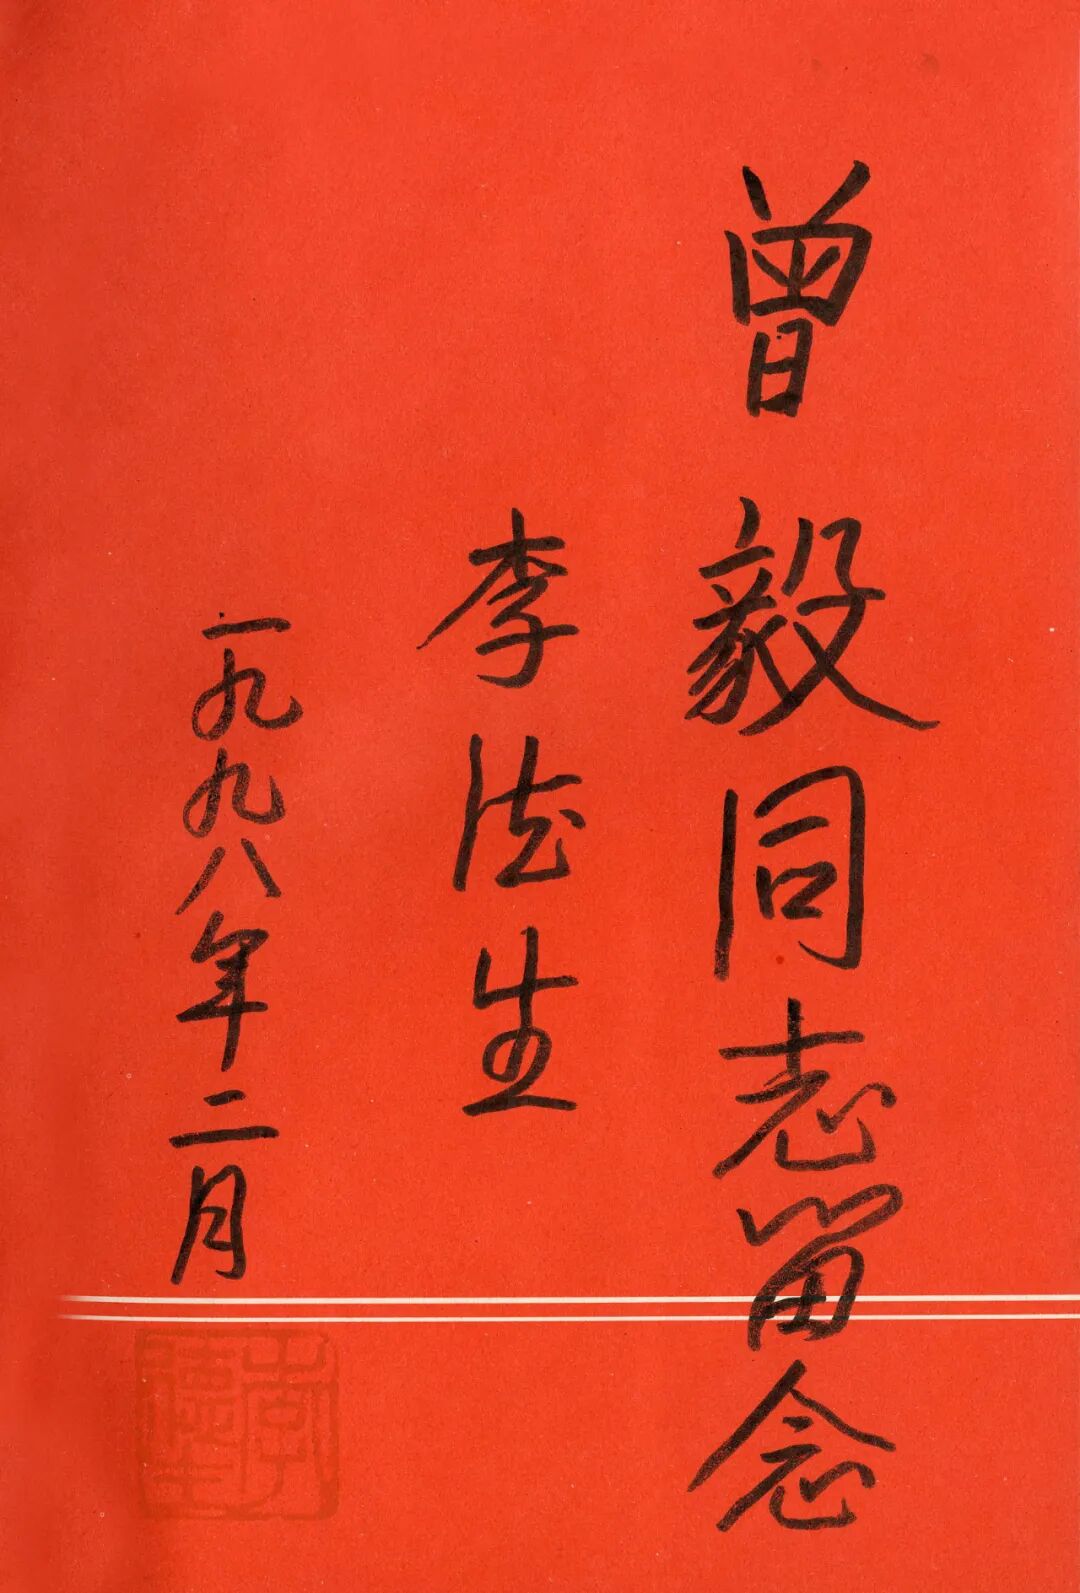 曾毅同志留念
李德生
一九九八年二月
李德生